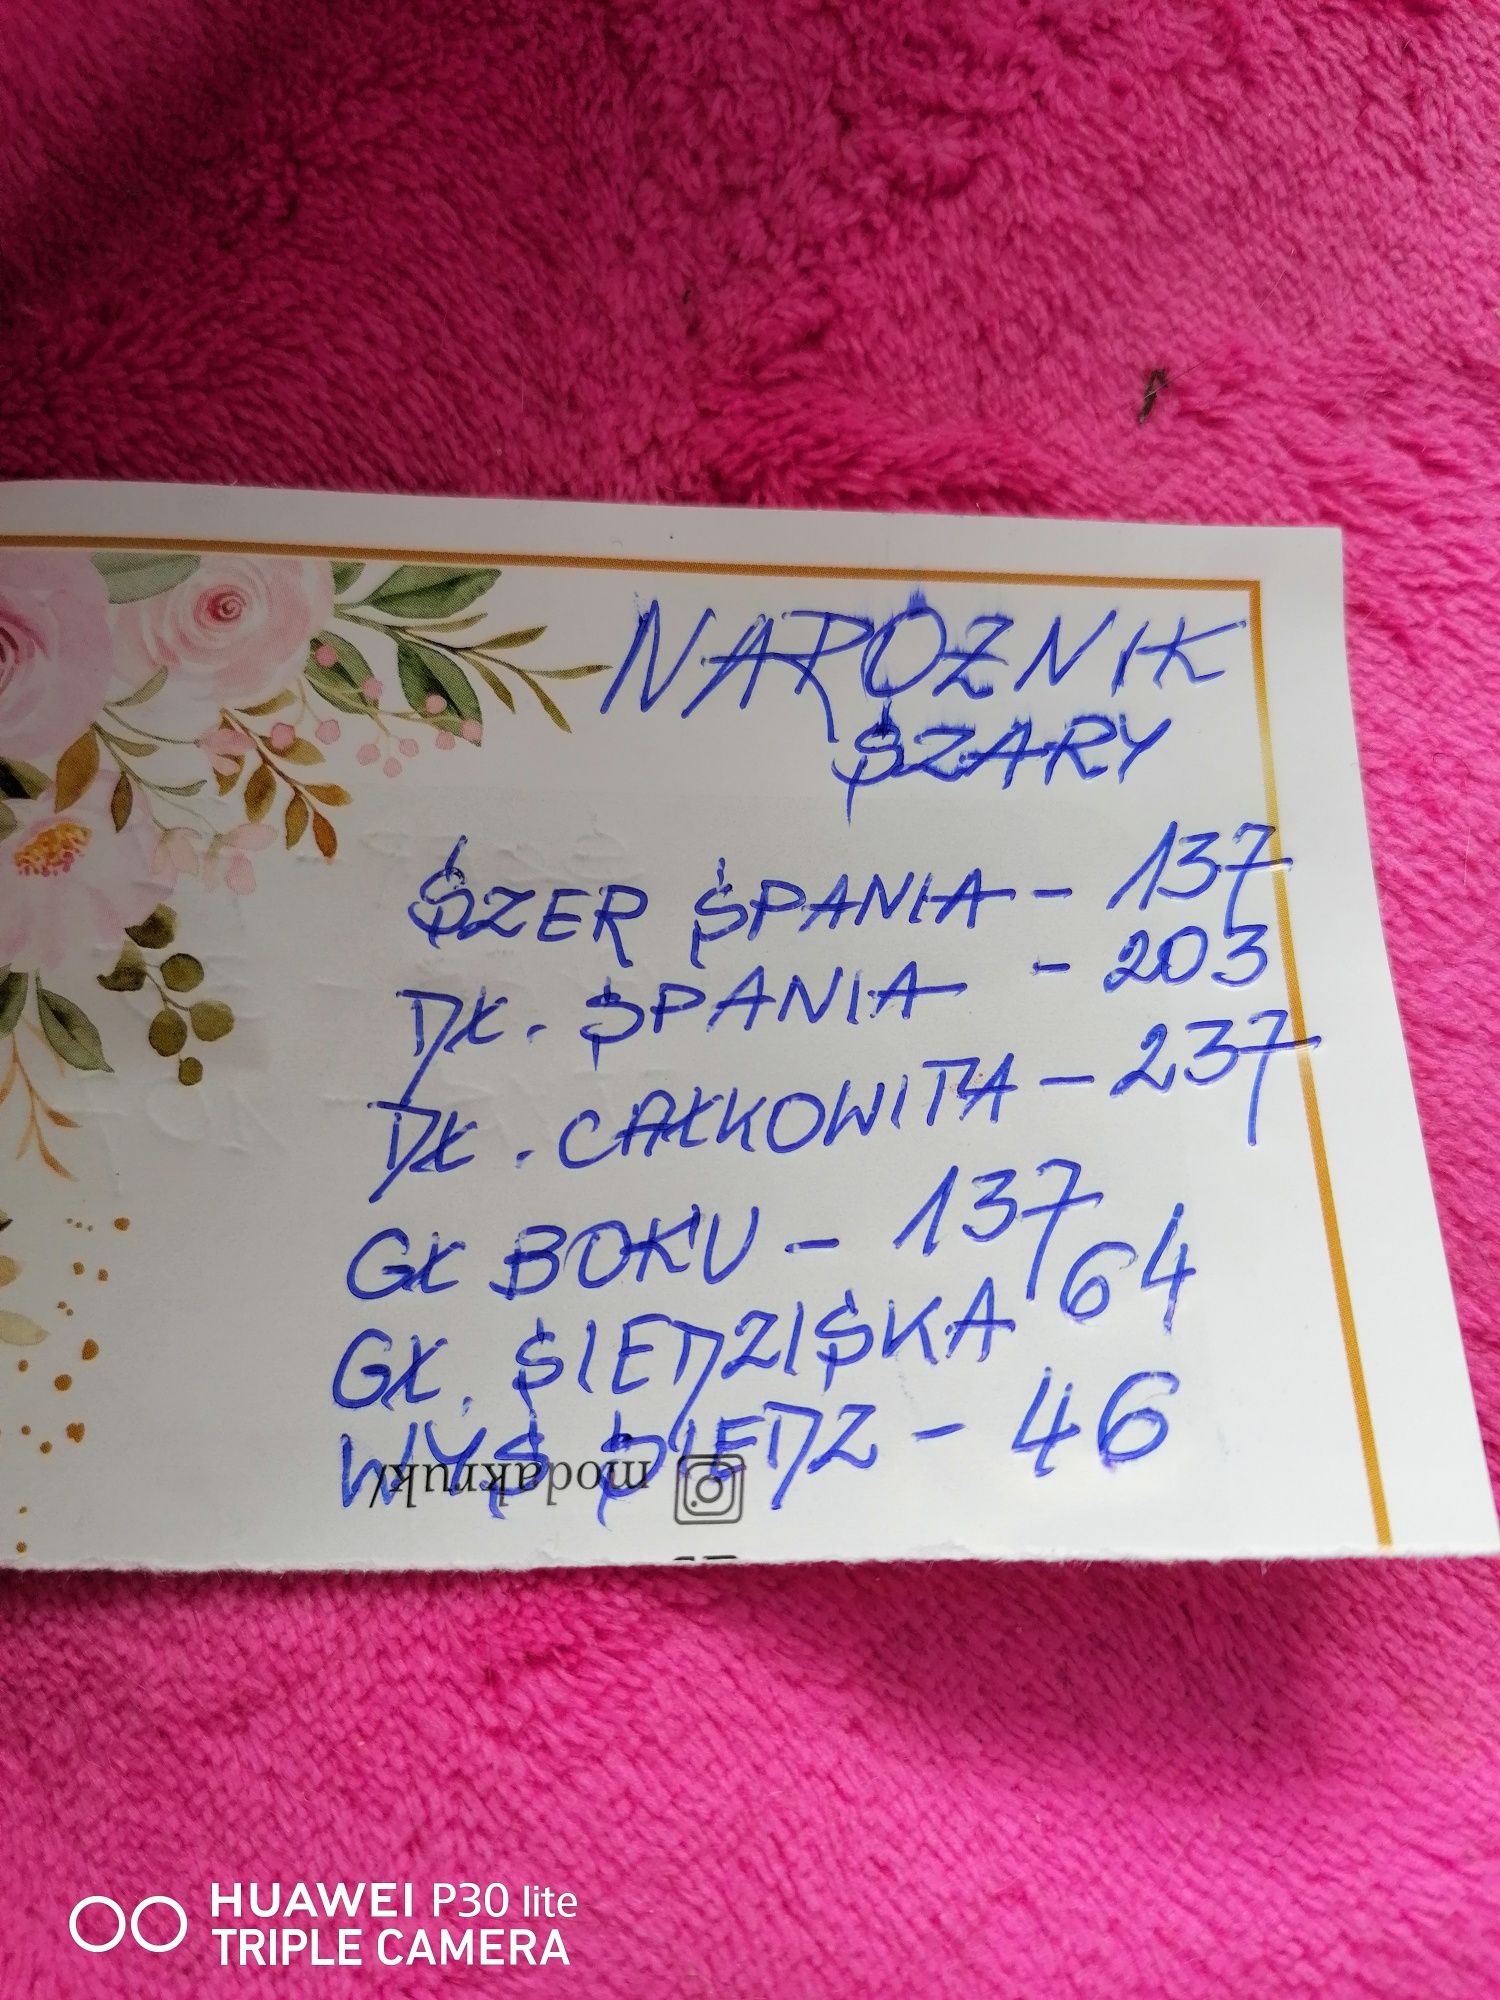 NAROŻNIK
SZARY
SZER SPANIA - 137
DŁ. SPANIA - 203
DŁ. CAŁKOWITA - 237
GŁ BOKU - 137
GŁ. SIEDZISKA 64
WYS SIEDZ - 46
modakruk/
HUAWEI P30 lite
TRIPLE CAMERA